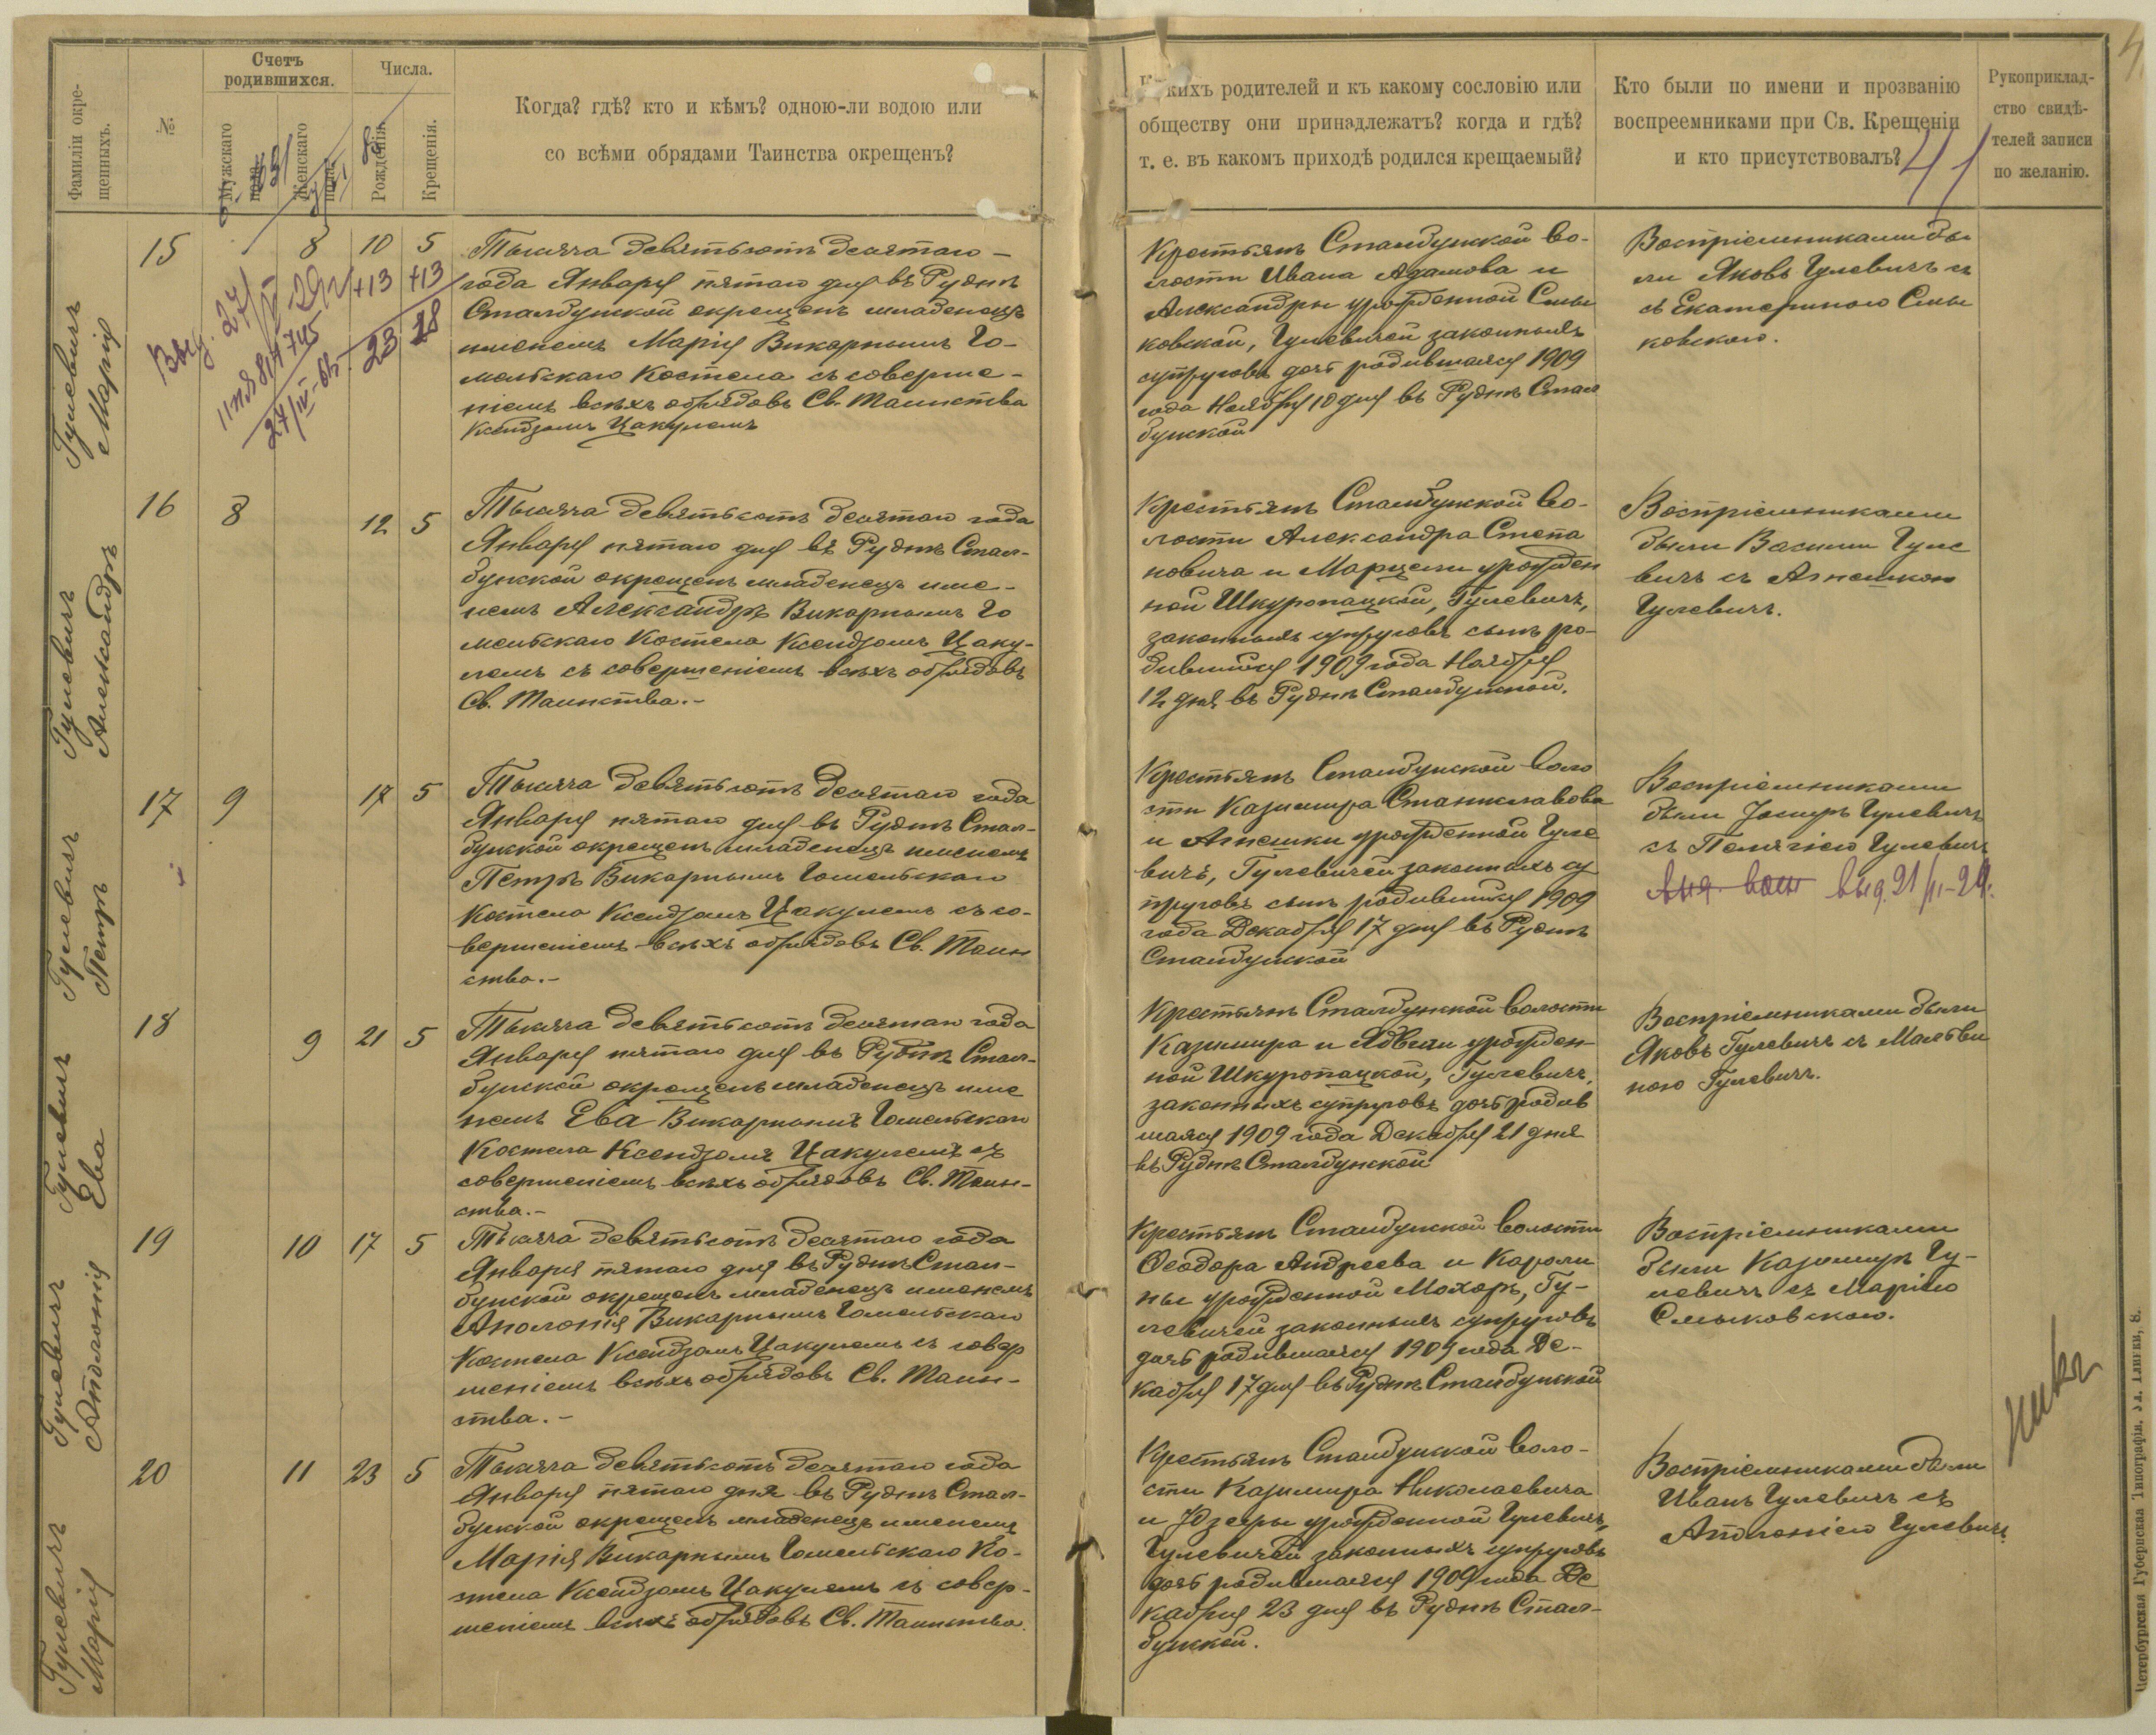 Фамиліи окре-
щенныхъ.
№
Счетъ
родившихся.
Мужскаго
пола.
Женскаго
пола.
Числа.
Рожденія.
Крещенія.
Когда? гдѣ? кто и кѣмъ? одною-ли водою или
со всѣми обрядами Таинства окрещенъ?
кихъ родителей и къ какому сословію или
обществу они принадлежатъ? когда и гдѣ?
т. е. въ какомъ приходѣ родился крещаемый?
Кто были по имени и прозванію
воспреемниками при Св. Крещеніи
и кто присутствовалъ?
41
Рукоприклад-
ство свидѣ-
телей записи
по желанію.
Гулевичъ
Марія
15
8
10
5
+13
+13
23
18
Тысяча девятьсотъ десятаго –
года Января пятаго дня въ Руднѣ
Сталбунской окрещенъ младенецъ
именемъ Марія Викарнымъ Го-
мельскаго Костела съ соверше-
ніемъ всѣхъ обрядовъ Св. Таинства
Ксендзомъ Цакулемъ
Крестьянъ Сталбунской во-
лости Ивана Адамова и
Александры урожденной Смы
ковской, Гулевичей законныхъ
супруговъ дочь родившаяся 1909
года Ноября 10 дня въ Руднѣ Стал
бунской
Воспріемниками бы
ли Яковъ Гулевичъ съ
съ Екатериною Смы
ковскою.
Гулевичъ
Александръ
16
8
12
5
Тысяча девятьсотъ десятаго года
Января пятаго дня въ Руднѣ Стал-
бунской окрещенъ младенецъ име-
немъ Александръ Викарнымъ Го
мельскаго Костела Ксендзомъ Цаку-
лемъ съ совершеніемъ всѣхъ обрядовъ
Св. Таинства.–
Крестьянъ Сталбунской во-
лости Александра Степа
новича и Марцели урожден
ной Шкуропацкой, Гулевичъ,
законныхъ супруговъ сынъ ро-
дившійся 1909 года Ноября
12 дня въ Руднѣ Сталбунской.
Воспріемниками
были Василій Гуле
вичъ съ Агнешкою
Гулевичъ.
Гулевичъ
Петръ
17
9
17
5
Тысяча девятьсотъ десятаго года
Января пятаго дня въ Руднѣ Стал-
бунской окрещенъ младенецъ именемъ
Петръ Викарнымъ Гомельскаго
Костела Ксендзомъ Цакулемъ съ со-
вершеніемъ всѣхъ обрядовъ Св. Таин
ства.–
Крестьянъ Сталбунской воло
сти Казимира Станиславова
и Агнешки урожденной Гуле
вичъ, Гулевичей законныхъ су
пруговъ сынъ родившійся 1909
года Декабря 17 дня въ Руднѣ
Сталбунской
Воспріемниками
были Гулевичъ
съ Пелагіею Гулевичъ
выд. 21/II-29.
Гулевичъ
Ева
18
9
21
5
Тысяча девятьсотъ десятаго года
Января пятаго дня въ Руднѣ Стал-
бунской окрещенъ младенецъ име
немъ Ева Викарнымъ Гомельскаго
Костела Ксендзомъ Цакулемъ съ
совершеніемъ всѣхъ обрядовъ Св. Таин-
ства.–
Крестьянъ Сталбунской волости
Казимира и Ядвиги урожден-
ной Шкуропацкой, Гулевичъ,
законныхъ супруговъ дочь родив
шаяся 1909 года Декабря 21 дня
въ Руднѣ Сталбунской
Воспріемниками были
Яковъ Гулевичъ съ Мальви
ною Гулевичъ.
Гулевичъ
Аполонія
19
10
17
5
Тысяча девятьсотъ десятаго года
Января пятаго дня въ Руднѣ Стал-
бунской окрещенъ младенецъ именемъ
Аполонія Викарнымъ Гомельскаго
Костела Ксендзомъ Цакулемъ съ совер
шеніемъ всѣхъ обрядовъ Св. Таин-
ства.–
Крестьянъ Сталбунской волости
Ѳеодора Андреева и Кароли
ны урожденной Мохоръ, Гу-
левичей законныхъ супруговъ
дочь родившаяся 1909 года Де-
кабря 17 дня въ Руднѣ Сталбунской
Воспріемниками
были Казимиръ Гу-
левичъ съ Маріею
Смыковскою.
Гулевичъ
Марія
20
11
23
5
Тысяча девятьсотъ десятаго года
Января пятаго дня въ Руднѣ Стал-
бунской окрещенъ младенецъ именемъ
Марія Викарнымъ Гомельскаго Ко-
стела Ксендзомъ Цакулемъ съ совер-
шеніемъ всѣхъ обрядовъ Св. Таинства.
Крестьянъ Сталбунской воло-
сти Казимира Николаевича
и Юзефы урожденной Гулевичъ,
Гулевичей законныхъ супруговъ
дочь родившаяся 1909 года Де
кабря 23 дня въ Руднѣ Стал-
бунской.
Воспріемниками были
Иванъ Гулевичъ съ
Аполоніею Гулевичъ
Губернская Типографія,